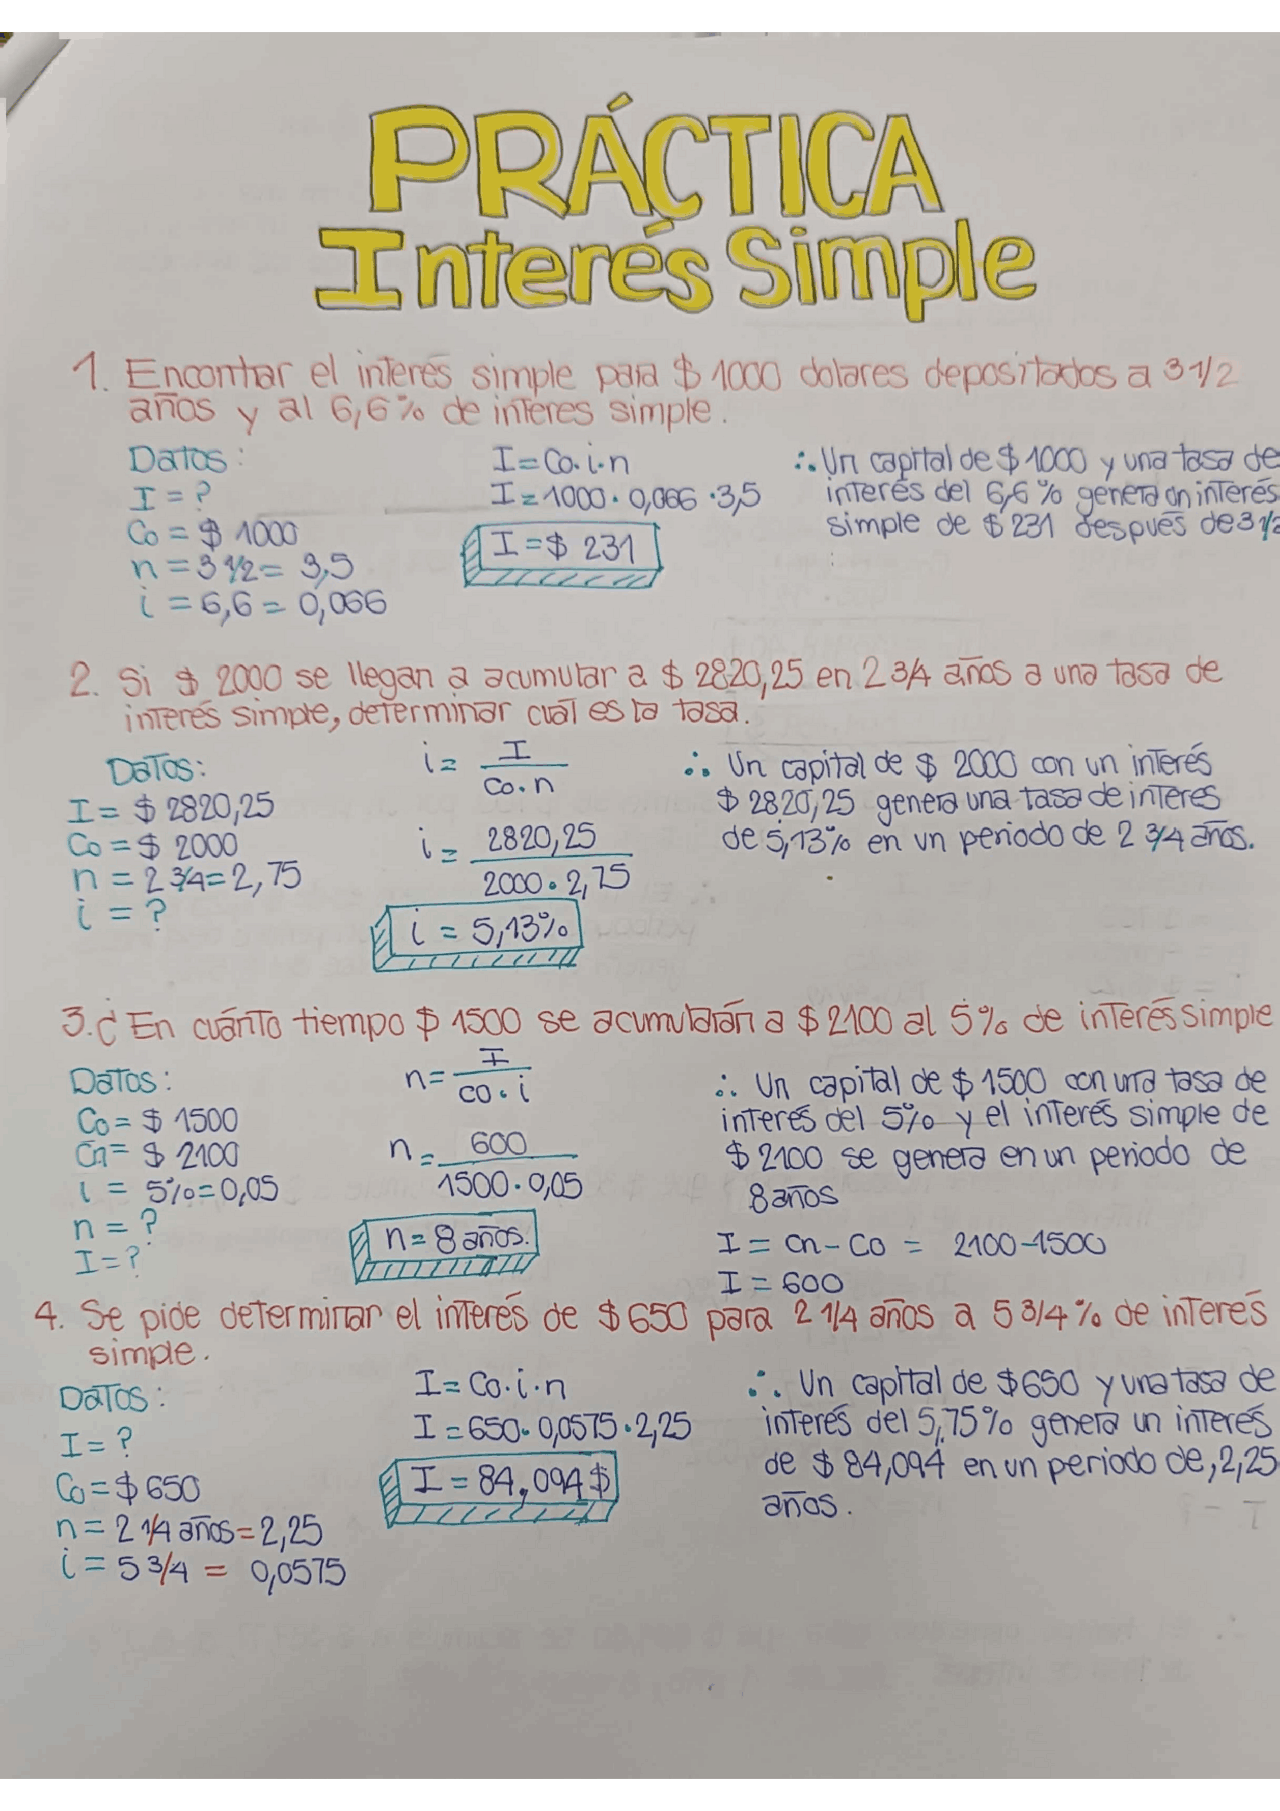 PRÁCTICA
Interés Simple
1. Encontrar el interés simple para $ 1000 dolares depositados a 3 1/2
años y al 6,6% de interes simple.
Datos:
I = ?
Co = $ 1000
n = 3 1/2 = 3,5
i = 6,6 = 0,066
I = Co. i. n
I = 1000 . 0,066 . 3,5
I = $ 231
∴ Un capital de $ 1000 y una tasa de
interés del 6,6 % genera un interés
simple de $ 231 después de 3 1/2
2. Si $ 2000 se llegan a acumular a $ 2820,25 en 2 3/4 años a una tasa de
interés simple, determinar cuál es la tasa.
Datos:
I = $ 2820,25
Co = $ 2000
n = 2 3/4 = 2,75
i = ?
i = I / Co. n
i = 2820,25 / 2000 . 2,75
i = 5,13%
∴ Un capital de $ 2000 con un interés
$ 2820,25 genera una tasa de interes
de 5,13% en un periodo de 2 3/4 años.
3. ¿ En cuánto tiempo $ 1500 se acumularán a $ 2100 al 5% de interés simple
Datos:
Co = $ 1500
Cn = $ 2100
i = 5% = 0,05
n = ?
I = ?
n = I / co . i
n = 600 / 1500 . 0,05
n = 8 años.
∴ Un capital de $ 1500 con una tasa de
interés del 5% y el interés simple de
$ 2100 se genera en un periodo de
8 años
I = Cn - Co = 2100 - 1500
I = 600
4. Se pide determinar el interés de $ 650 para 2 1/4 años a 5 3/4 % de interés
simple.
Datos:
I = ?
Co = $ 650
n = 2 1/4 años = 2,25
i = 5 3/4 = 0,0575
I = Co. i. n
I = 650. 0,0575 . 2,25
I = 84,094 $
∴ Un capital de $650 y una tasa de
interés del 5,75% genera un interés
de $ 84,094 en un periodo de, 2,25
años.